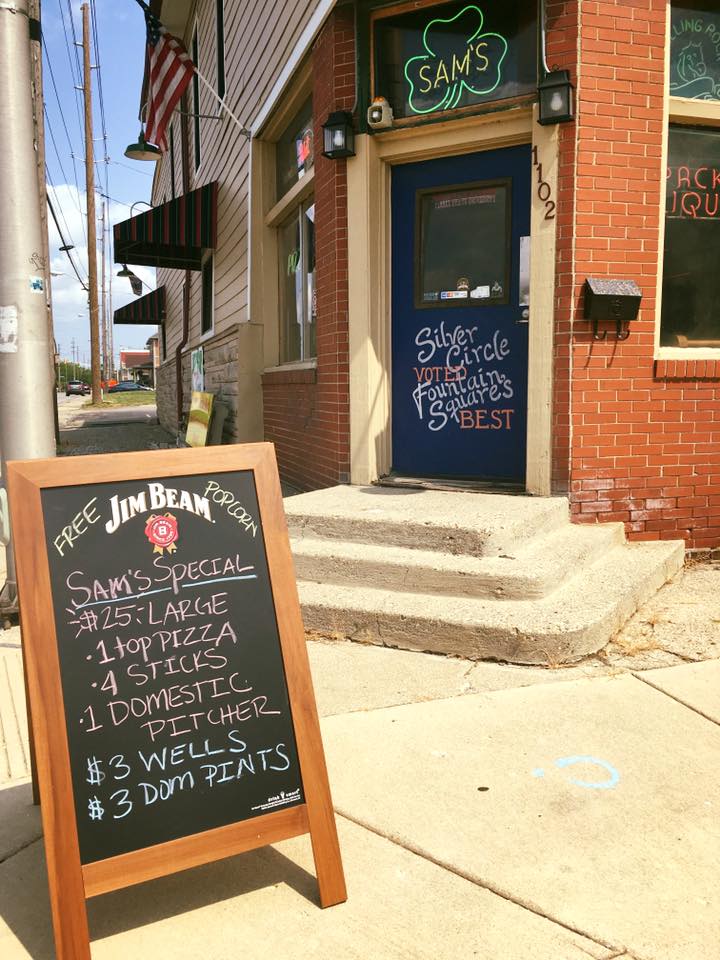 SAM'S
1102
PACK
LIQU
Silver
Circle
VOTED
Fountain
Square's
BEST
FREE JIM BEAM POPCORN
B
SAM'S SPECIAL
$25- LARGE
· 1 top PIZZA
· 4 STICKS
· 1 DOMESTIC
PITCHER
$3 WELLS
$3 DOM PINTS
drink smart